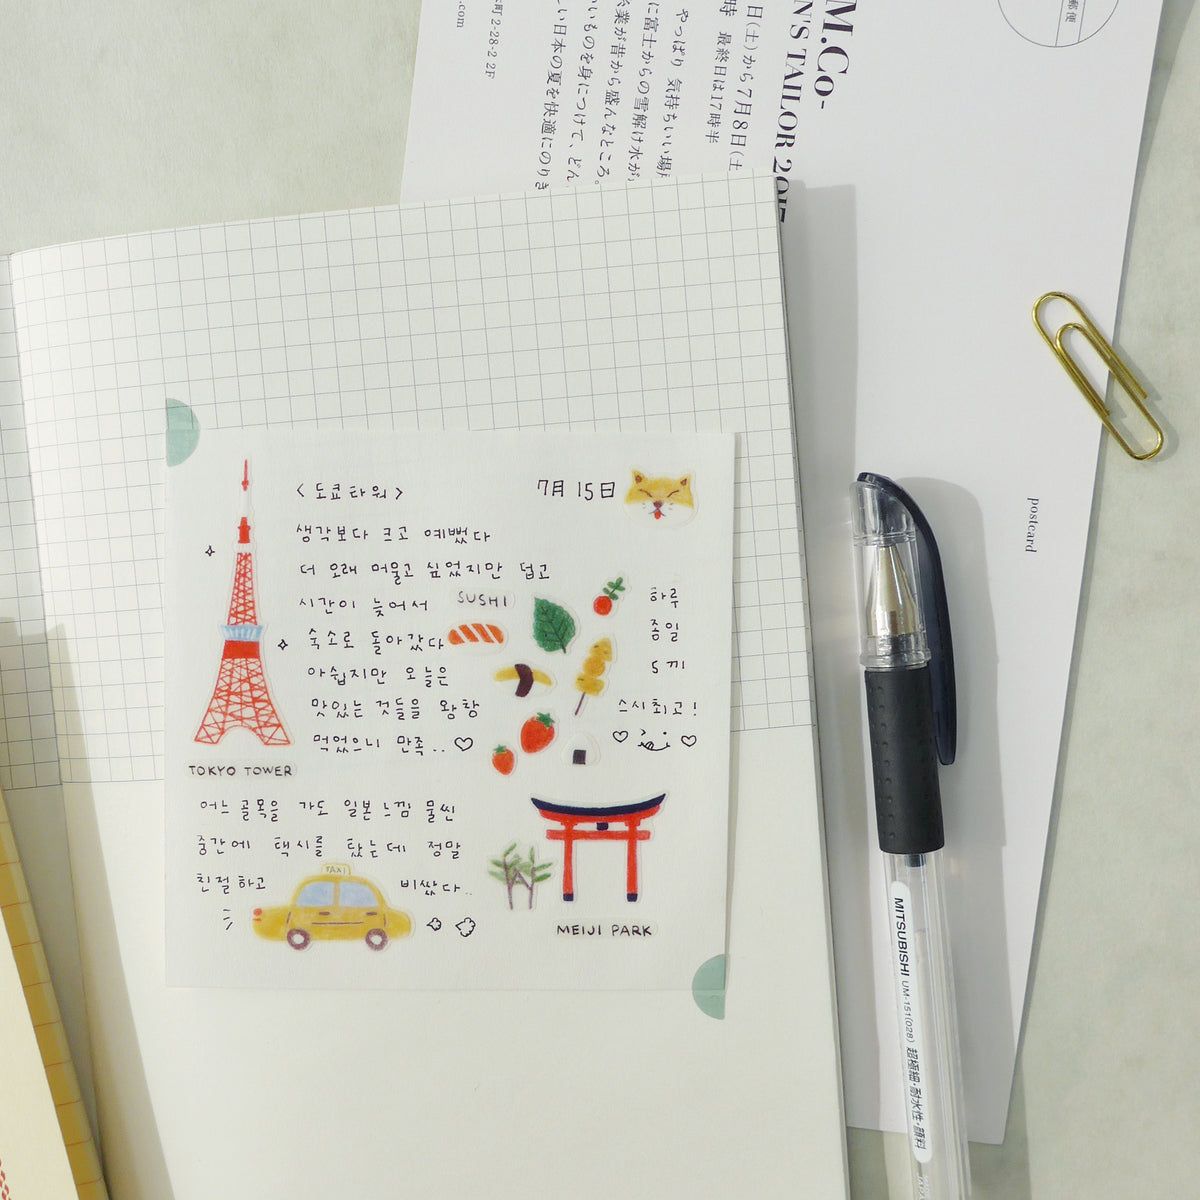 M.Co-
N'S TAILOR 2017
日(土)から7月8日(土
時 最終日は17時半
やっぱり 気持ちいい場所
に富士からの雪解け水が
糸業が昔から盛んなところ。
いいものを身につけて、どん
しい日本の夏を快適にのりき
町 2-28-2 2F
.com
郵便
postcard
<도쿄타워>
7月 15日
생각보다 크고 예뻤다
더 오래 머물고 싶었지만 덥고
시간이 늦어서
숙소로 돌아갔다
아쉽지만 오늘은
맛있는 것들을 왕창
먹었으니 만족.. ♡
SUSHI
하루
종일
5끼
스시최고!
TOKYO TOWER
어느 골목을 가도 일본느낌 물씬
중간에 택시를 탔는데 정말
친절하고 비쌌다..
TAXI
MEIJI PARK
MITSUBISHI UM-151(028) 超極細・耐水性・顔料